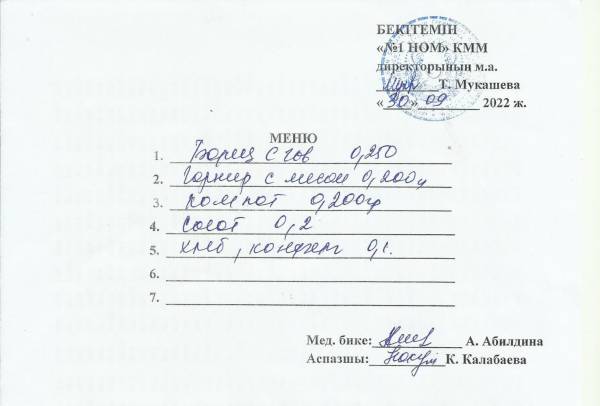 БЕКІТЕМІН
«№1 НОМ» КММ
директорының м.а.
Т. Мукашева
«30» 09 2022 ж.
МЕНЮ
1. Борщ с гов 0,250
2. Гарнир с мясом 0,200г
3. компот 0,200гр
4. Салат 0,2
5. хлеб, конфеты 0,1.
6.
7.
Мед. бике: А. Абилдина
Аспазшы: К. Калабаева